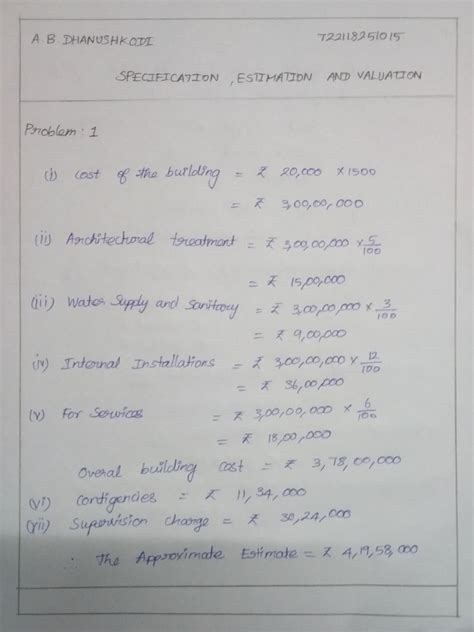 A. B. DHANUSHKODI 722118251015
SPECIFICATION, ESTIMATION AND VALUATION
Problem: 1
(i) cost of the building = ₹ 20,000 × 1500
= ₹ 3,00,00,000
(ii) Architechural treatment = ₹ 3,00,00,000 × 5/100
= ₹ 15,00,000
(iii) Water Supply and Sanitary = ₹ 3,00,00,000 × 3/100
= ₹ 9,00,000
(iv) Internal Installations = ₹ 3,00,00,000 × 12/100
= ₹ 36,00,000
(v) For Services = ₹ 3,00,00,000 × 6/100
= ₹ 18,00,000
Overal building cost = ₹ 3,78,00,000
(vi) Contigencies = ₹ 11,34,000
(vii) Supervision charge = ₹ 30,24,000
∴ The Approximate Estimate = ₹ 4,19,58,000